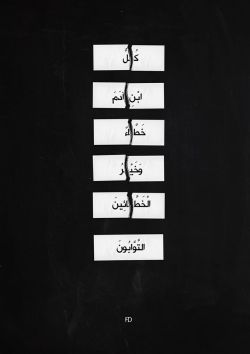 كُلُّ
ابْنِ آدَمَ
خَطَّاءٌ
وَخَيْرُ
الْخَطَّائِينَ
التَّوَّابُونَ
FD